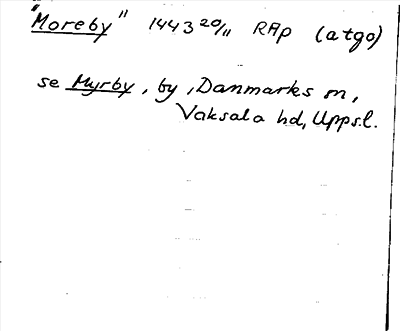 "Moreby" 1443 20/11 RAp (atgo)
se Myrby, by, Danmarks sn,
Vaksala hd, Upps.l.